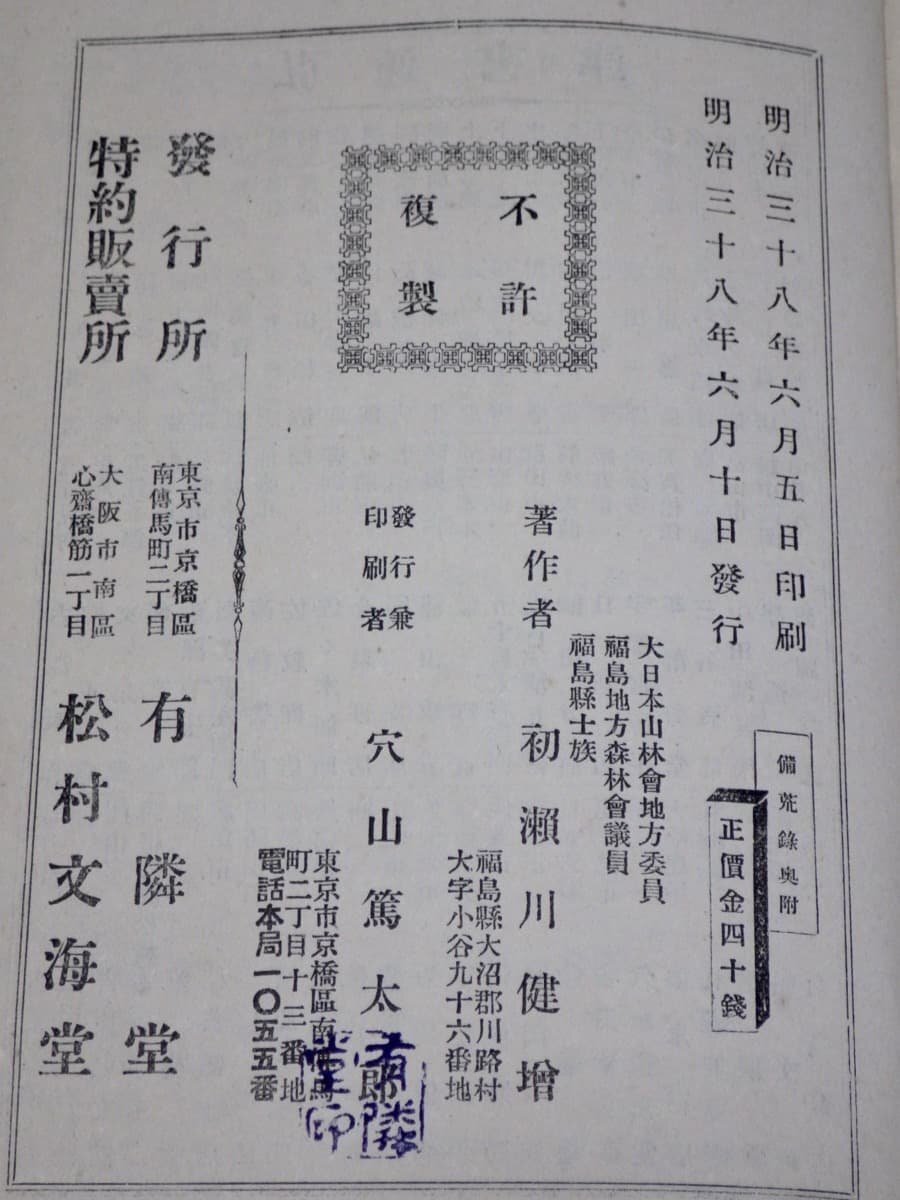 明治三十八年六月五日印刷
明治三十八年六月十日發行
備荒錄奥附
正價金四十錢
不許
複製
大日本山林會地方委員
福島地方森林會議員
福島縣士族
著作者 初瀨川健增
福島縣大沼郡川路村
大字小谷九十六番地
發行兼
印刷者
穴山篤太郎
東京市京橋區南傳馬
町二丁目十三番地
電話本局一〇五五番
有隣
堂印
發行所
東京市京橋區
南傳馬町二丁目
有隣堂
特約販賣所
大阪市南區
心齋橋筋一丁目
松村文海堂